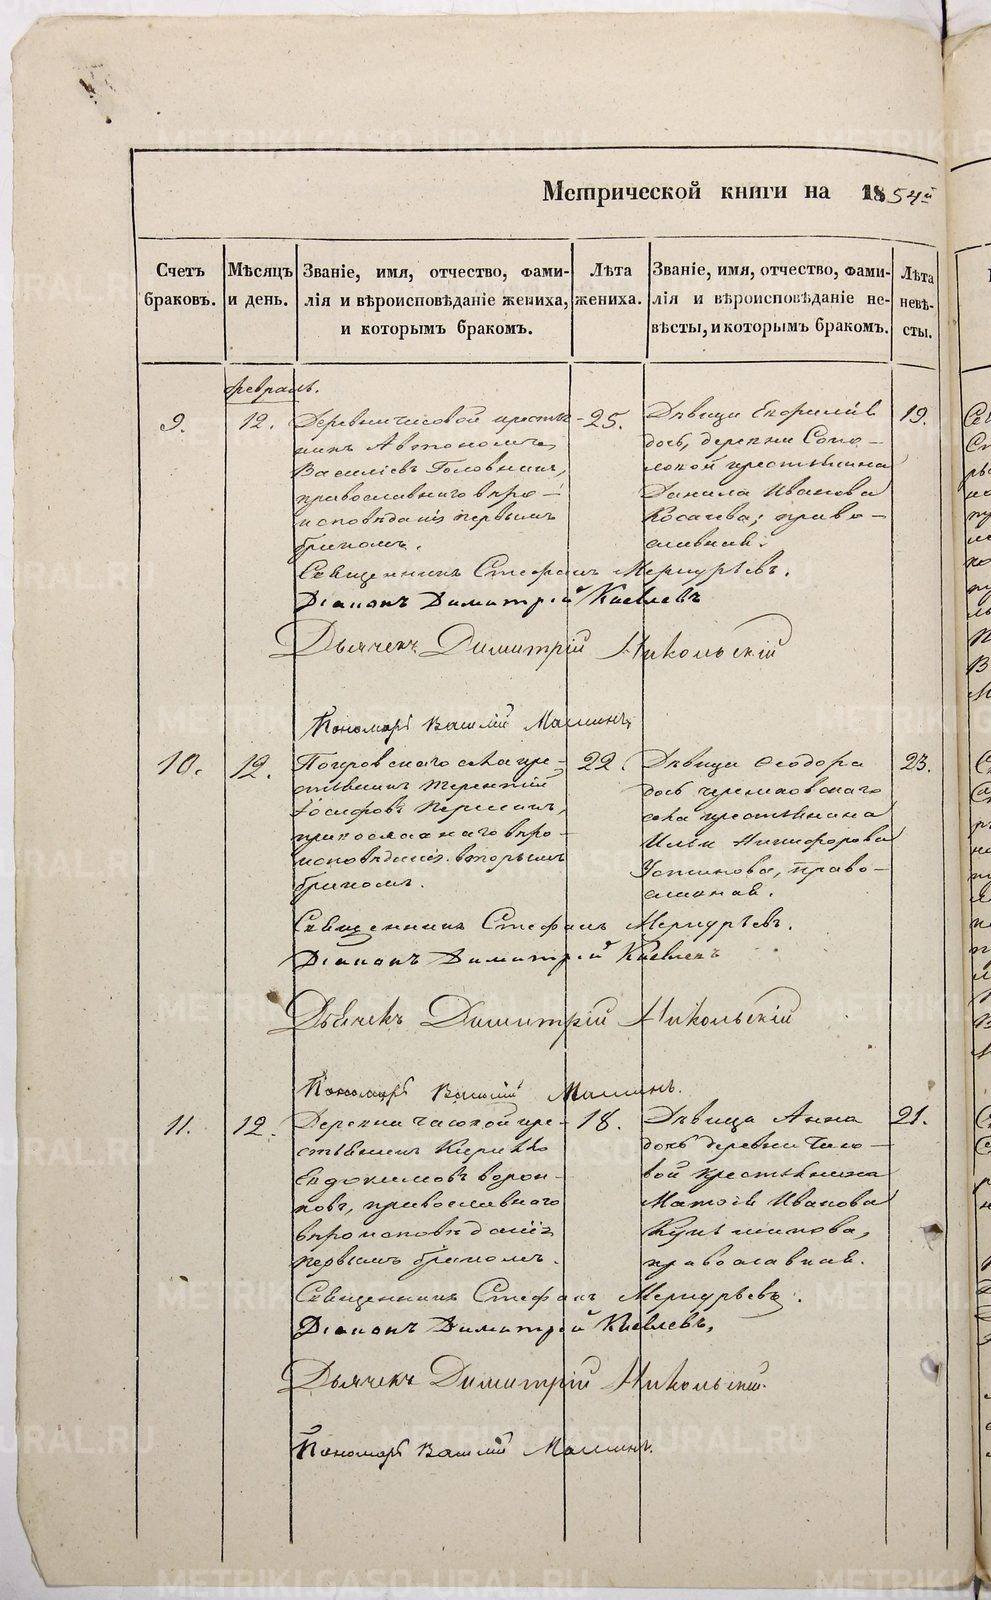 Метрической книги на 1854й
Счетъ браковъ.
Мѣсяцъ и день.
Званіе, имя, отчество, фами-
лія и вѣроисповѣданіе жениха,
и которымъ бракомъ.
Лѣта
жениха.
Званіе, имя, отчество, фами-
лія и вѣроисповѣданіе не-
вѣсты, и которымъ бракомъ.
Лѣта
невѣ-
сты.
Февраль.
9.
12.
Деревни Часовой крестья-
нинъ Автономъ
Василіевъ Головнинъ,
православнаго вѣро-
исповѣданія первымъ
бракомъ.
25.
Дѣвица
дочь, деревни
крестьянина
Данила Иванова
Косачева; право-
славная.
19.
Священникъ Стефанъ Меркурьевъ.
Діаконъ Димитрій Киевлевъ
Дьячекъ Димитрій Никольскій
Пономарь Василій Мамминъ
10.
12.
Покровскаго села кре-
стьянинъ Терентій
Іосифовъ
православнаго вѣро-
исповѣданія вторымъ
бракомъ.
22.
Дѣвица Ѳеодора
дочь Черемховскаго
села крестьянина
Ильи Никифорова
Устинова, право-
славная.
23.
Священникъ Стефанъ Меркурьевъ.
Діаконъ Димитрій Киевлевъ
Дьячекъ Димитрій Никольскій
Пономарь Василій Мамминъ.
11.
12.
Деревни Часовой кре-
стьянинъ Кирилъ
Евдокимовъ Ворон-
ковъ, православнаго
вѣроисповѣданія
первымъ бракомъ.
18.
Дѣвица Анна
дочь деревни Часо-
вой крестьянина
Матвѣя Иванова
православная.
21.
Священникъ Стефанъ Меркурьевъ.
Діаконъ Димитрій Киевлевъ,
Дьячекъ Димитрій Никольскій.
Пономарь Василій Мамминъ.
METRIKI.GASO-URAL.RU